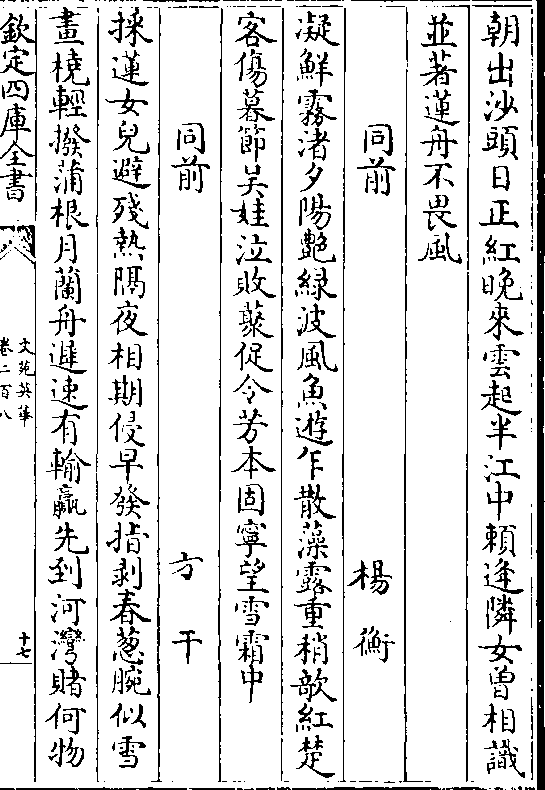 朝出沙頭日正紅晚來雲起半江中頼逢隣女曾相識
並著蓮舟不畏風
同前 楊衡
凝鮮霧渚夕陽艶緑波風魚遊乍散藻露重稍欹紅楚
客傷暮節吴娃泣敗藂促令芳本固寧望雪霜中
同前 方干
採蓮女兒避殘熱隔夜相期侵早發指剥春葱腕似雪
畫橈輕撥蒲根月蘭舟遲速有輸贏先到河灣賭何物
欽定四庫全書
文苑英華
卷二百八
十七